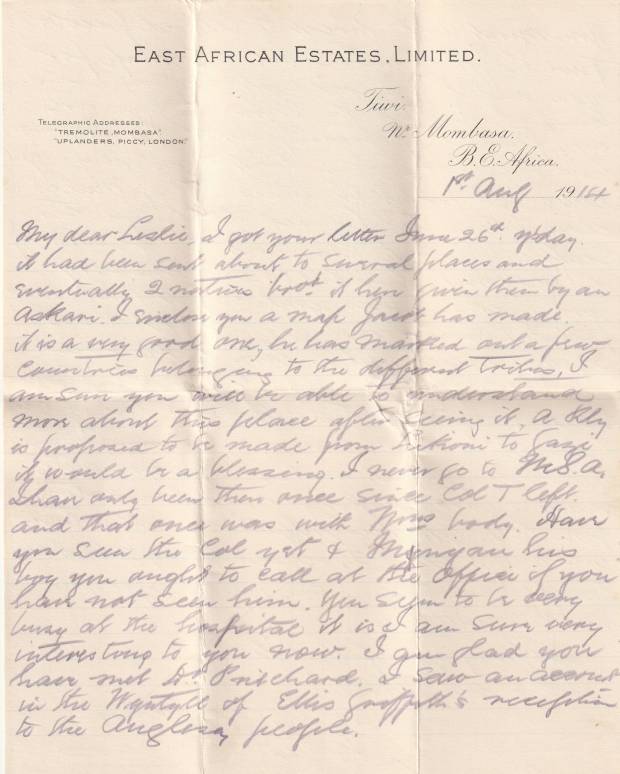 EAST AFRICAN ESTATES, LIMITED.
Tiwi.
Nr. Mombasa.
B.E. Africa.
TELEGRAPHIC ADDRESSES:
"TREMOLITE, MOMBASA".
"UPLANDERS, PICCY, LONDON."
1st Aug 1914
My dear Leslie, I got your letter June 26th y'day.
it had been sent about to several places and
eventually 2 natives brot it here given them by an
Askari. I enclose you a map Jacob has made.
it is a very good one, he has marked out a few
countries belonging to the different tribes, I
am sure you will be able to understand
more about this place after seeing it. A Rly
is proposed to be made from to Gazi
it would be a blessing. I never go to M.S.A.
I have only been there once since Col T left.
and that once was with body. Have
you seen the Col yet & his
boy you ought to call at the office if you
have not seen him. You seem to be very
busy at the hospital it is I am sure very
interesting to you now. I am glad you
have met Dr. Pritchard. I saw an account
in the of Ellis Griffith's reception
to the Anglesey people.